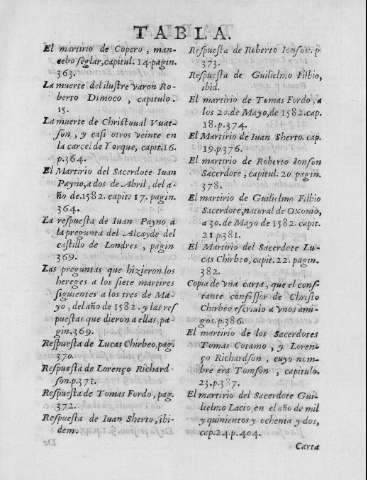 TABLA.
El martirio de Copero, man-
cebo seglar, capitul. 14. pagin.
363.
La muerte del ilustre varon Ro-
berto Dimoco, capitulo.
15.
La muerte de Christoual Vuat-
son, y casi otros veinte en
la carcel de Yorque, capit. 16.
p. 364.
El Martirio del Sacerdote Iuan
Payno, a dos de Abril, del a-
ño de. 1582. capit. 17. pagin.
364.
La respuesta de Iuan Payno a
la pregunta del Alcayde del
castillo de Londres, pagin
369.
Las preguntas que hizieron los
hereges a los siete martires
siguientes a los tres de Ma-
yo, del año de. 1582. y las res
puestas que dieron a ellas. pa-
gin. 369.
Respuesta de Lucas Chirbeo, pag.
370.
Respuesta de Lorenço Richard
son. p. 371.
Respuesta de Tomas Fordo, pag.
372.
Respuesta de Iuan Sherto, ibi-
dem.
Respuesta de Roberto Ionson. p
373.
Respuesta de Guilielmo Filbio,
ibid.
El martirio de Tomas Fordo, a
los 20. de Mayo, de 1582. cap.
18. p. 374.
El Martirio de Iuan Sherto. cap.
19. p. 376.
El martirio de Roberto Ionson
Sacerdote, capitul. 20. pagin.
378.
El martirio de Guilielmo Filbio
Sacerdote, natural de Oxonio,
a 30. de Mayo de 1582. capit.
21. p. 381.
El Martirio del Sacerdote Lu-
cas Chirbeo, capit. 22. pagin.
382.
Copia de vna carta, que el cons-
tante confessor de Christo
Chirbeo escriuio a vnos ami-
gos. p. 386.
El martirio de los Sacerdotes
Tomas Cotamo, y Loren-
ço Richardson, cuyo nom-
bre era Tomson, capitulo.
23. p. 387.
El martirio del Sacerdote Gui-
lielmo Lacio, en el año de mil
y quinientos y ochenta y dos,
cap. 24. p. 404.
Carta